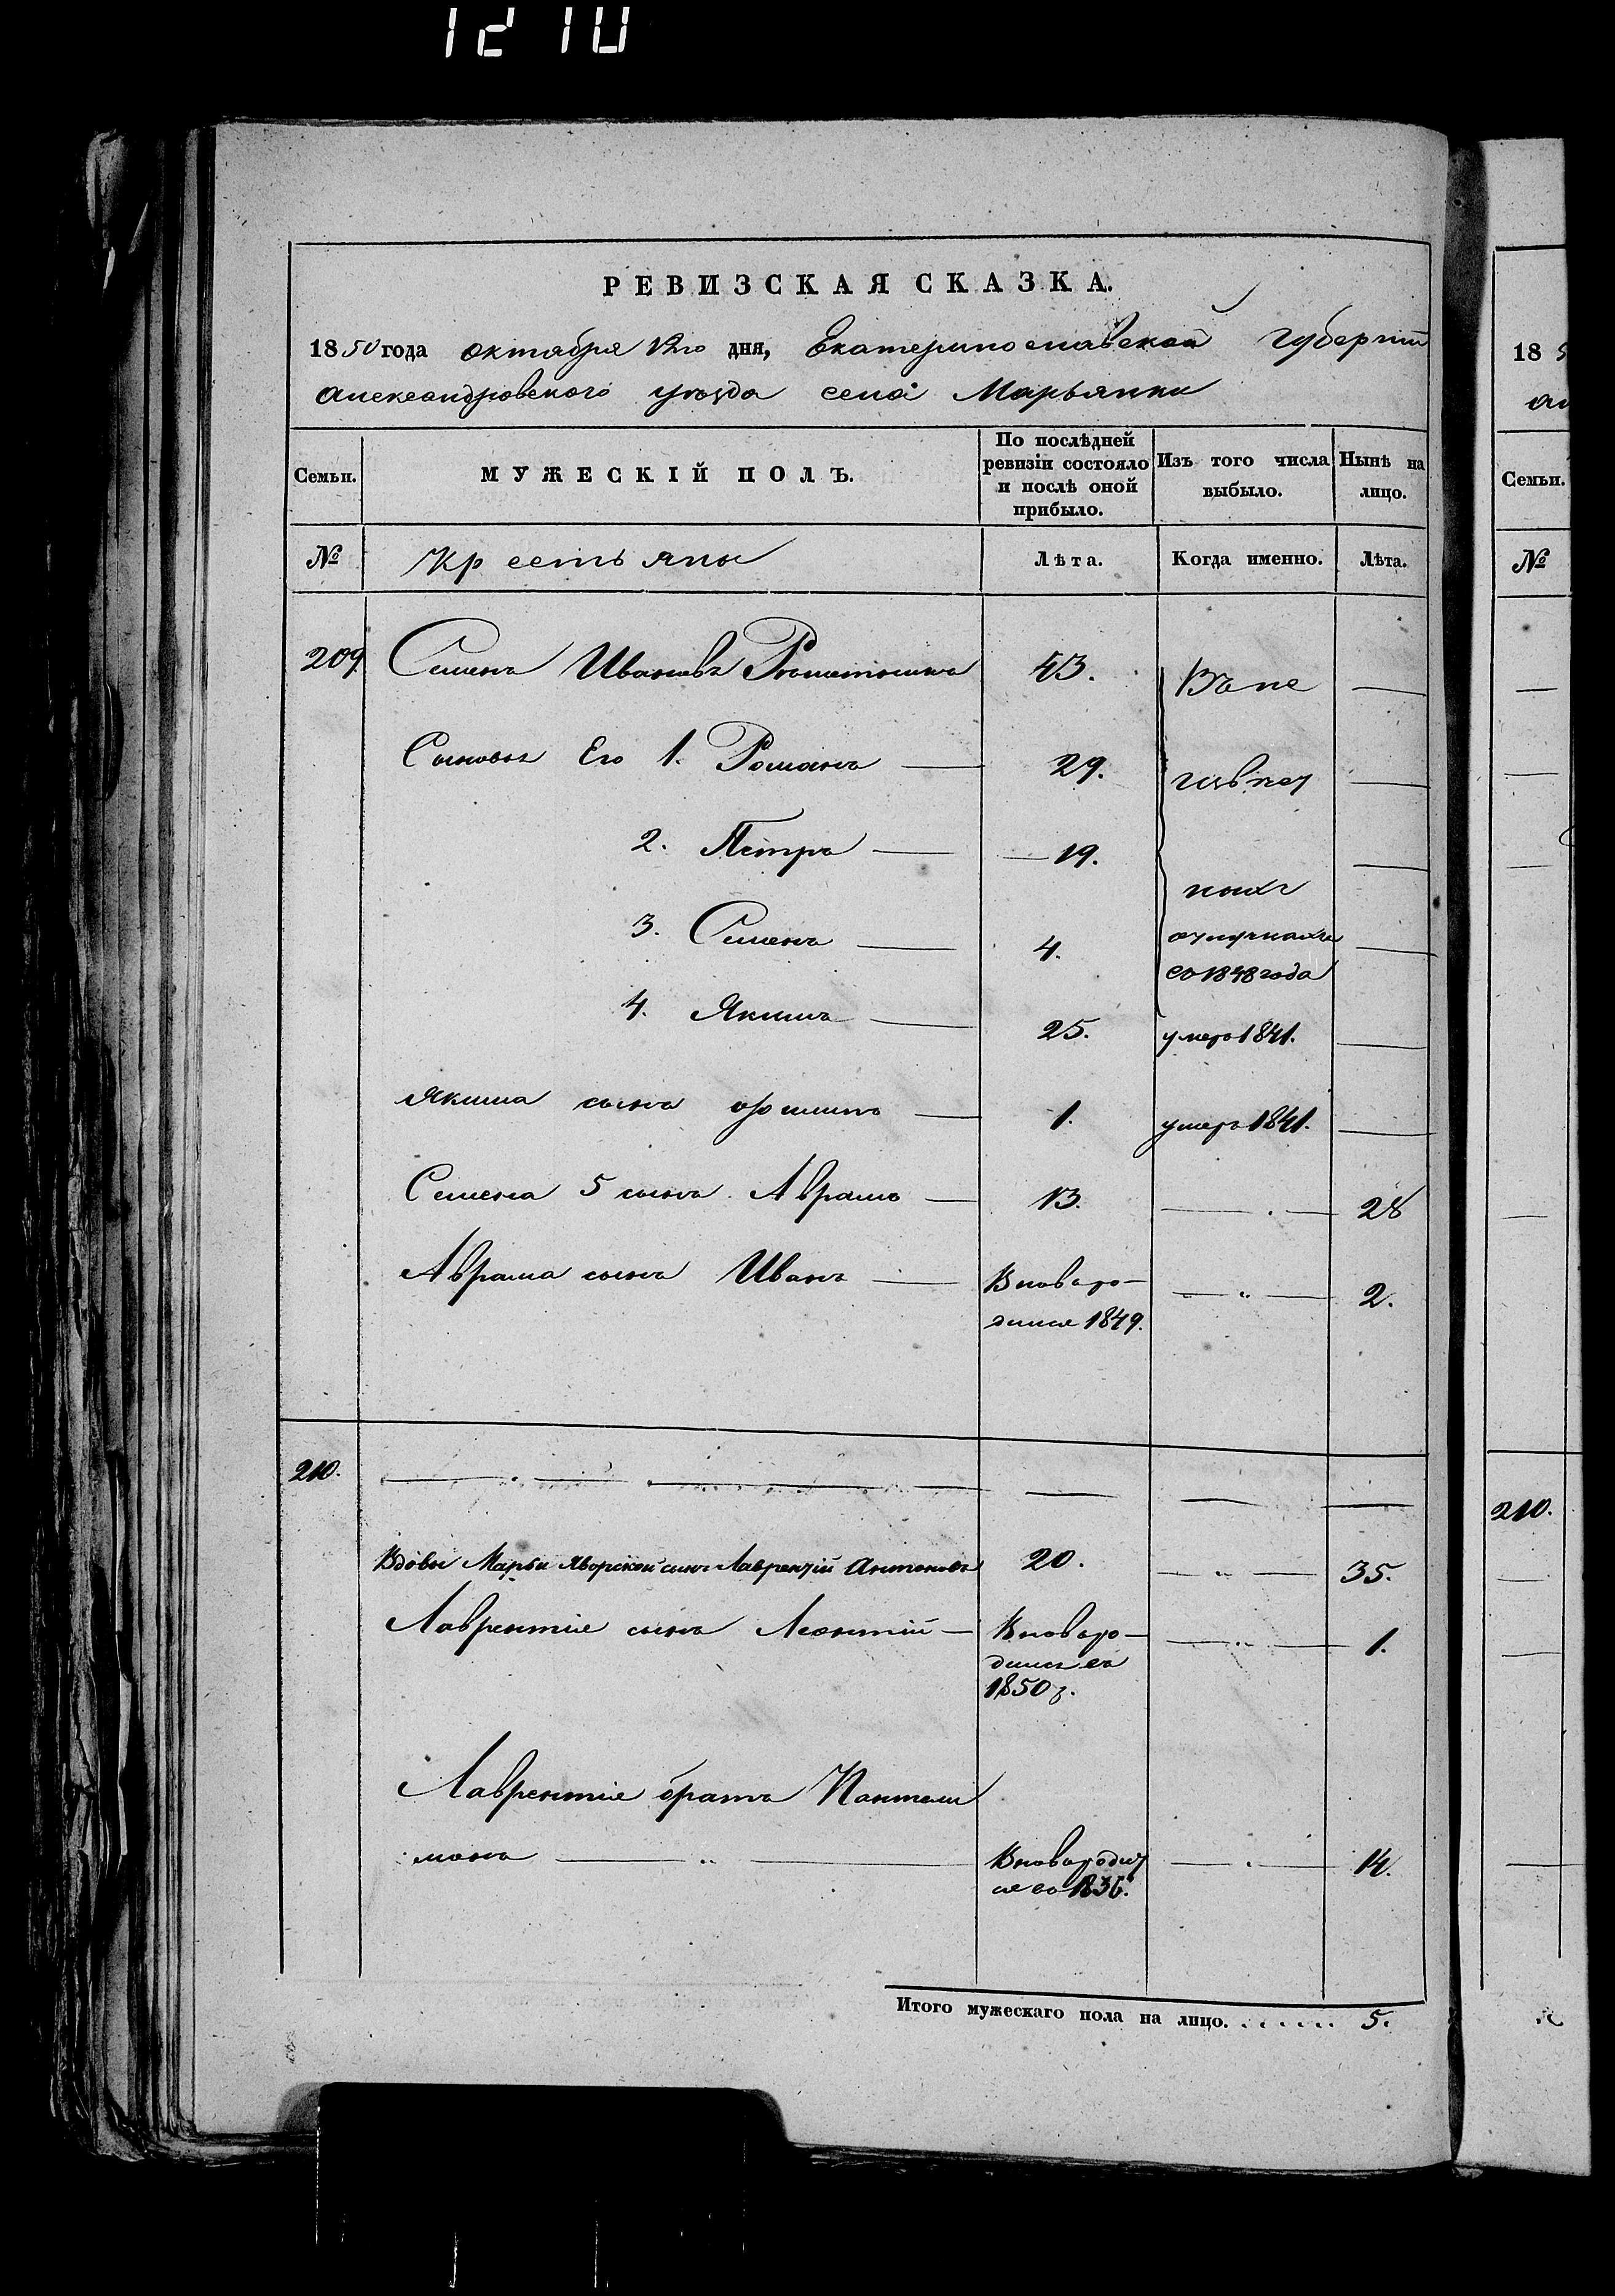 1210
РЕВИЗСКАЯ СКАЗКА.
1850 года октября 12го дня, Екатеринославской Губерніи
Александровского уѣзда села Марьянки
Семьи.
МУЖЕСКІЙ ПОЛЪ.
По послѣдней ревизіи состояло и послѣ оной прибыло.
Изъ того числа выбыло.
Нынѣ на лицо.
№
Крестьяны
Лѣта.
Когда именно.
Лѣта.
209 Семенъ Ивановъ 43. Въ не —
Сыновья Его 1. Романъ — 29. —
2. Петръ — 19. —
3. Семенъ — 4. отлучкахъ —
со 1848 года
4. Якимъ — 25. умеръ 1841. —
Якима сынъ — 1. умеръ 1841. —
Семена 5 сынъ Аврамъ — 13. — 28
Аврама сынъ Иванъ — Вновьро- — " — 2.
дился 1849.
210. — — — —
Вдовы Марьи Яворской сынъ Лаврентій Антоновъ 20. — " — 35.
Лаврентіе сынъ Леонтій — Вновьро- — " — 1.
дился въ
1850 г.
Лаврентіе братъ Пантели
монъ — " — Вновьродил — 14.
ся во 1836.
Итого мужескаго пола на лицо. . . . . . . 5.
18 5
ал
Семьи.
№
210.